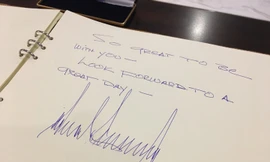 SO GREAT TO BE
WITH YOU —
LOOK FORWARD TO A
GREAT DAY —